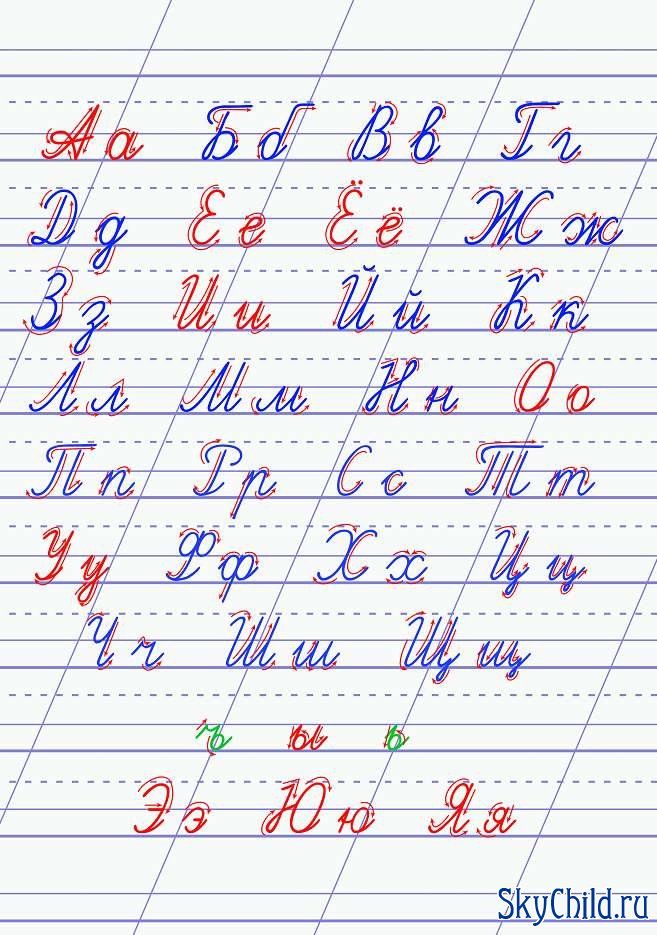 Аа Бб Вв Гг
Дд Ее Ёё Жж
Зз Ии Йй Кк
Лл Мм Нн Оо
Пп Рр Сс Тт
Уу Фф Хх Цц
Чч Шш Щщ
ъ ы ь
Ээ Юю Яя
SkyChild.ru